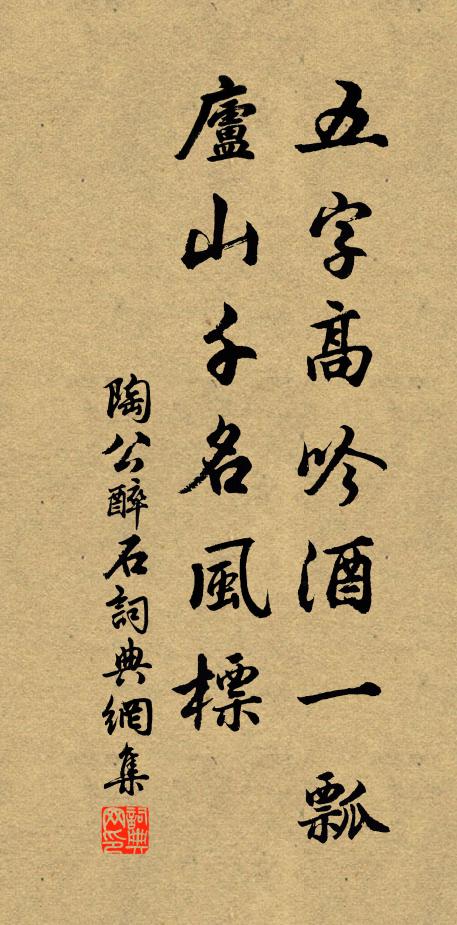 五字高吟酒一瓢
廬山千名風標
陶公醉石詞典網集
詞典网印